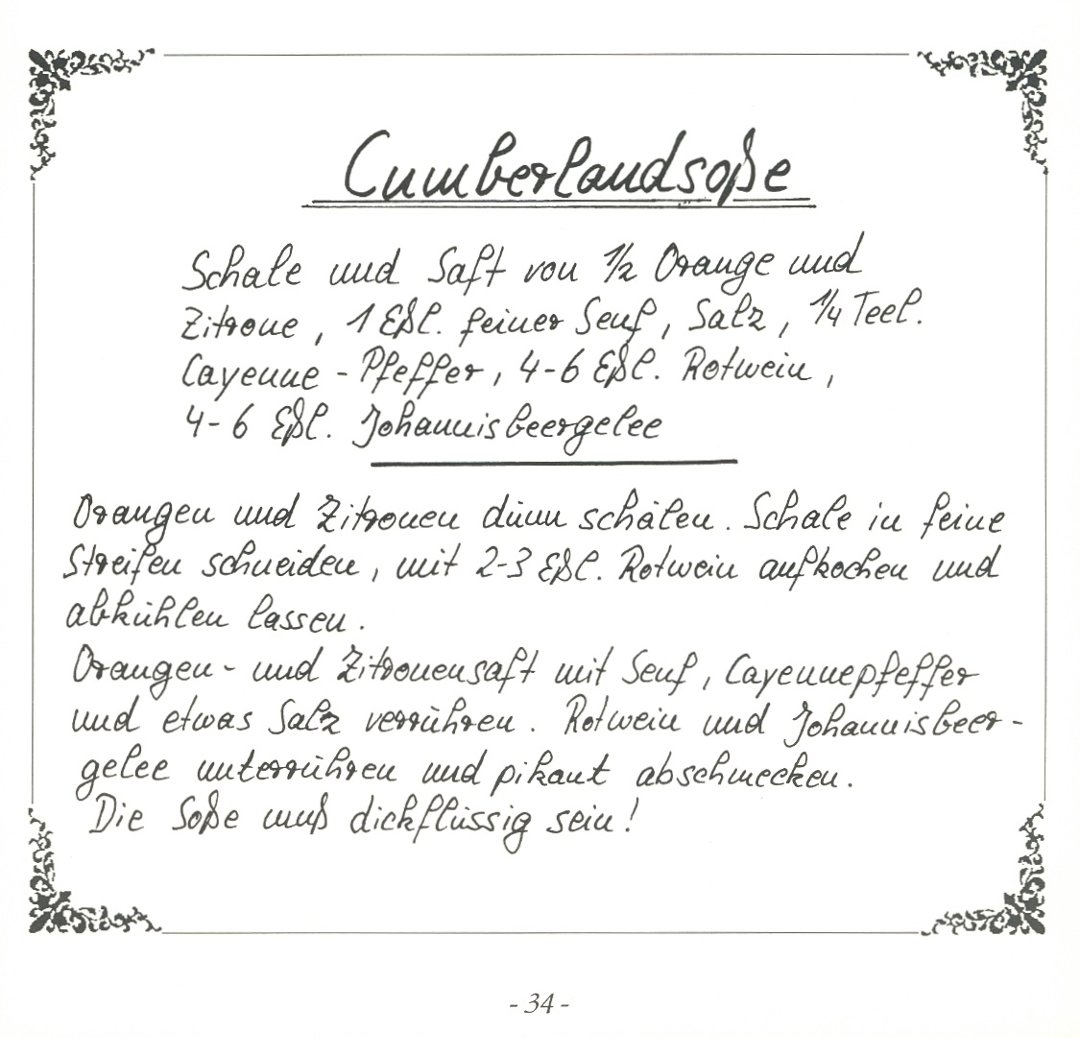 Cumberlandsoße
Schale und Saft von 1/2 Orange und
Zitrone, 1 Eßl. feiner Senf, Salz, 1/4 Teel.
Cayenne - Pfeffer, 4-6 Eßl. Rotwein,
4-6 Eßl. Johannisbeergelee
Orangen und Zitronen dünn schälen. Schale in feine
Streifen schneiden, mit 2-3 Eßl. Rotwein aufkochen und
abkühlen lassen.
Orangen- und Zitronensaft mit Senf, Cayennepfeffer
und etwas Salz verrühren. Rotwein und Johannisbeer-
gelee unterrühren und pikant abschmecken.
Die Soße muß dickflüssig sein!
- 34 -